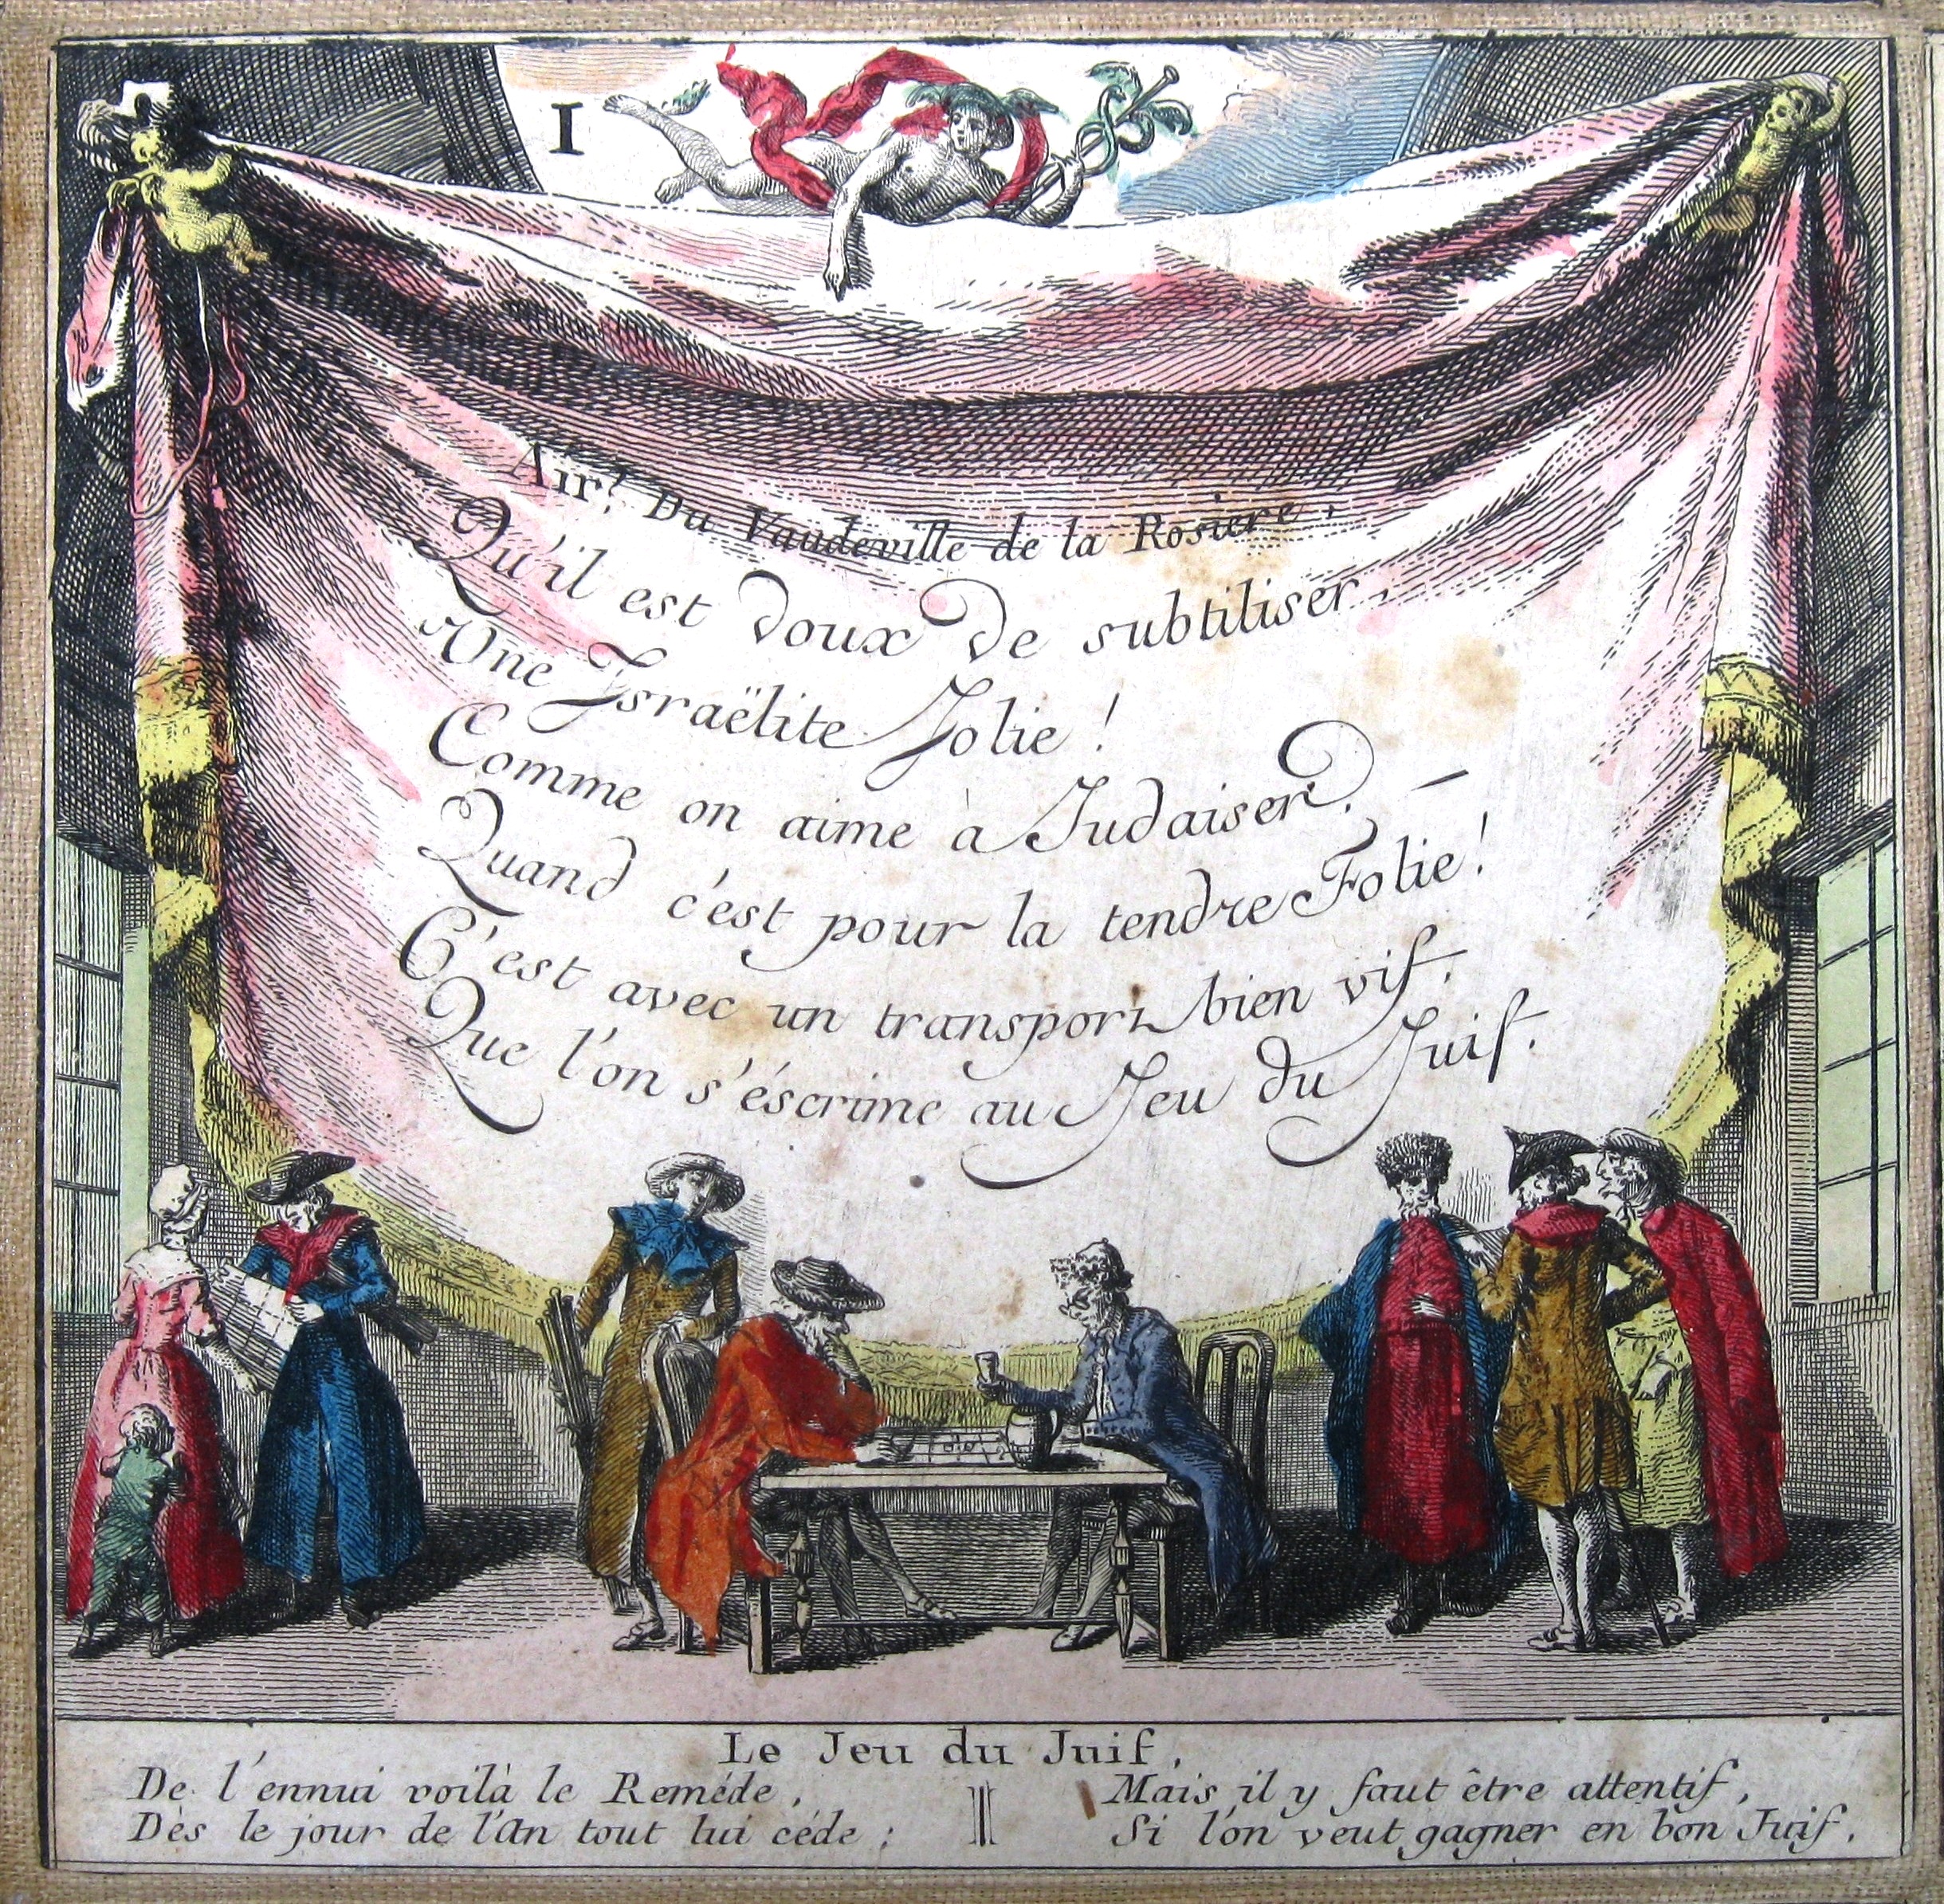 1
Air: Du Vaudeville de la Rosiere.
Qu'il est doux de subtiliser
Une Israëlite Jolie!
Comme on aime à Judaiser
Quand c'est pour la tendre Folie!
C'est avec un transport bien vif,
Que l'on s'éscrime au Jeu du Juif.
Le Jeu du Juif.
De l'ennui voilà le Reméde,
Dès le jour de l'An tout lui céde;
Mais il y faut être attentif,
Si l'on veut gagner en bon Juif.